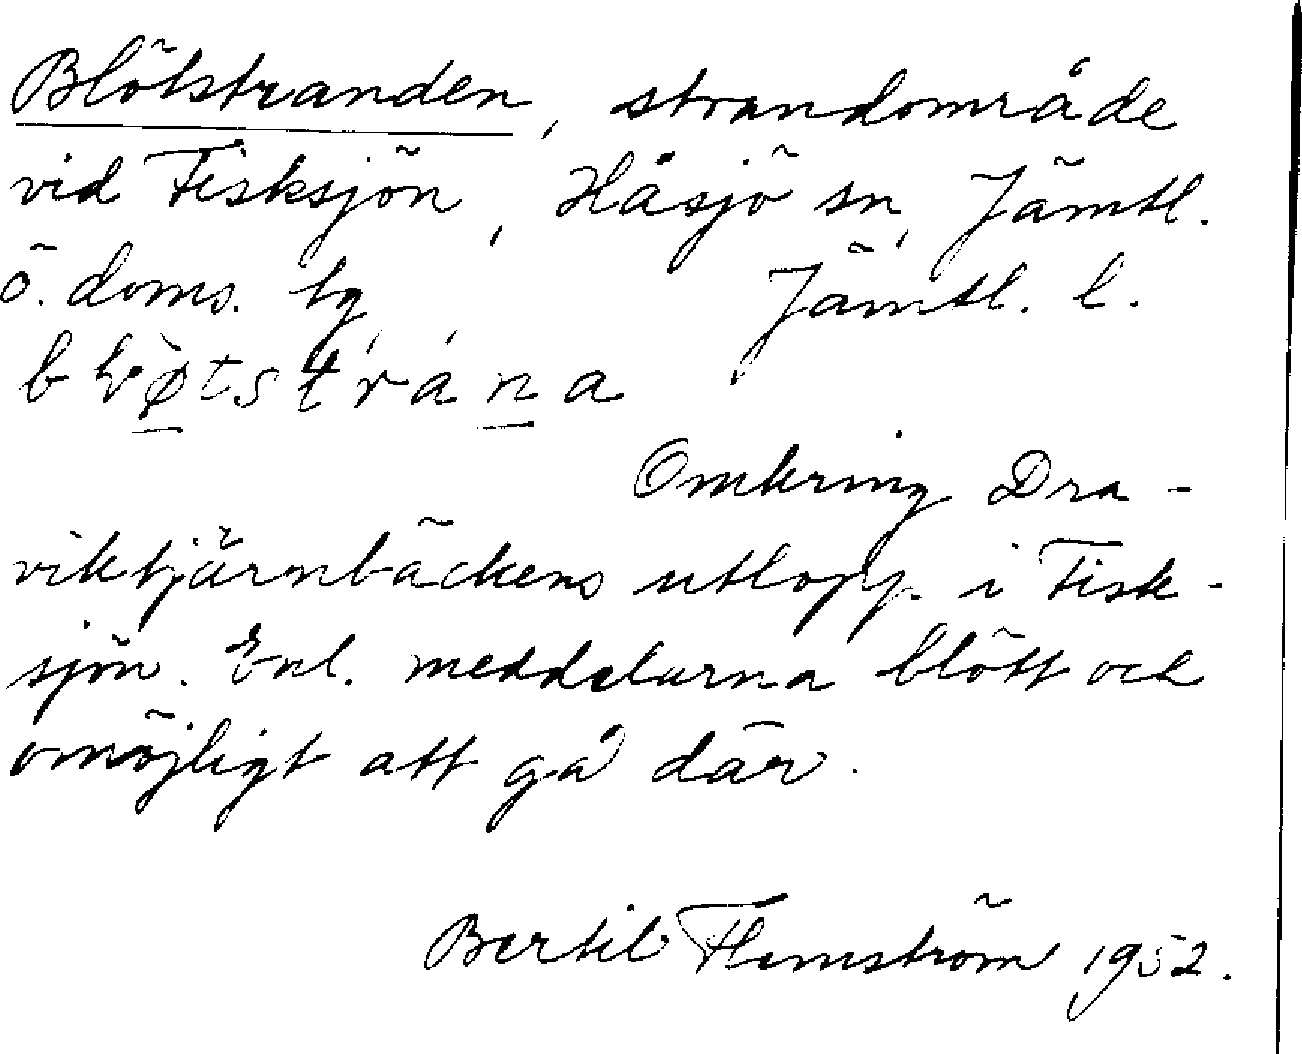 Blötstranden, strandområde
vid Fisksjön, Håsjö sn, Jämtl.
ö. doms. tg Jämtl. l.
Omkring Dra-
viktjärnbäckens utlopp i Fisk-
sjön. Enl. meddelarna blött och
omöjligt att gå där.
Bertil Flemström 1952.